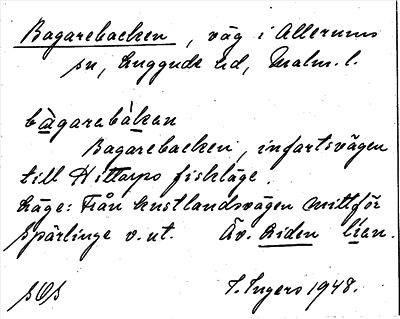 Bagarebacken, väg i Allerums
sn, Luggude hd, Malm. l.
bàgarebàkan
Bagarebacken, infartsvägen
till Hittarps fiskläge.
Läge: Från kustlandsvägen mittför
Spärlinge v. ut. Äv. Liden lian.
SOS T. Ingers 1948.